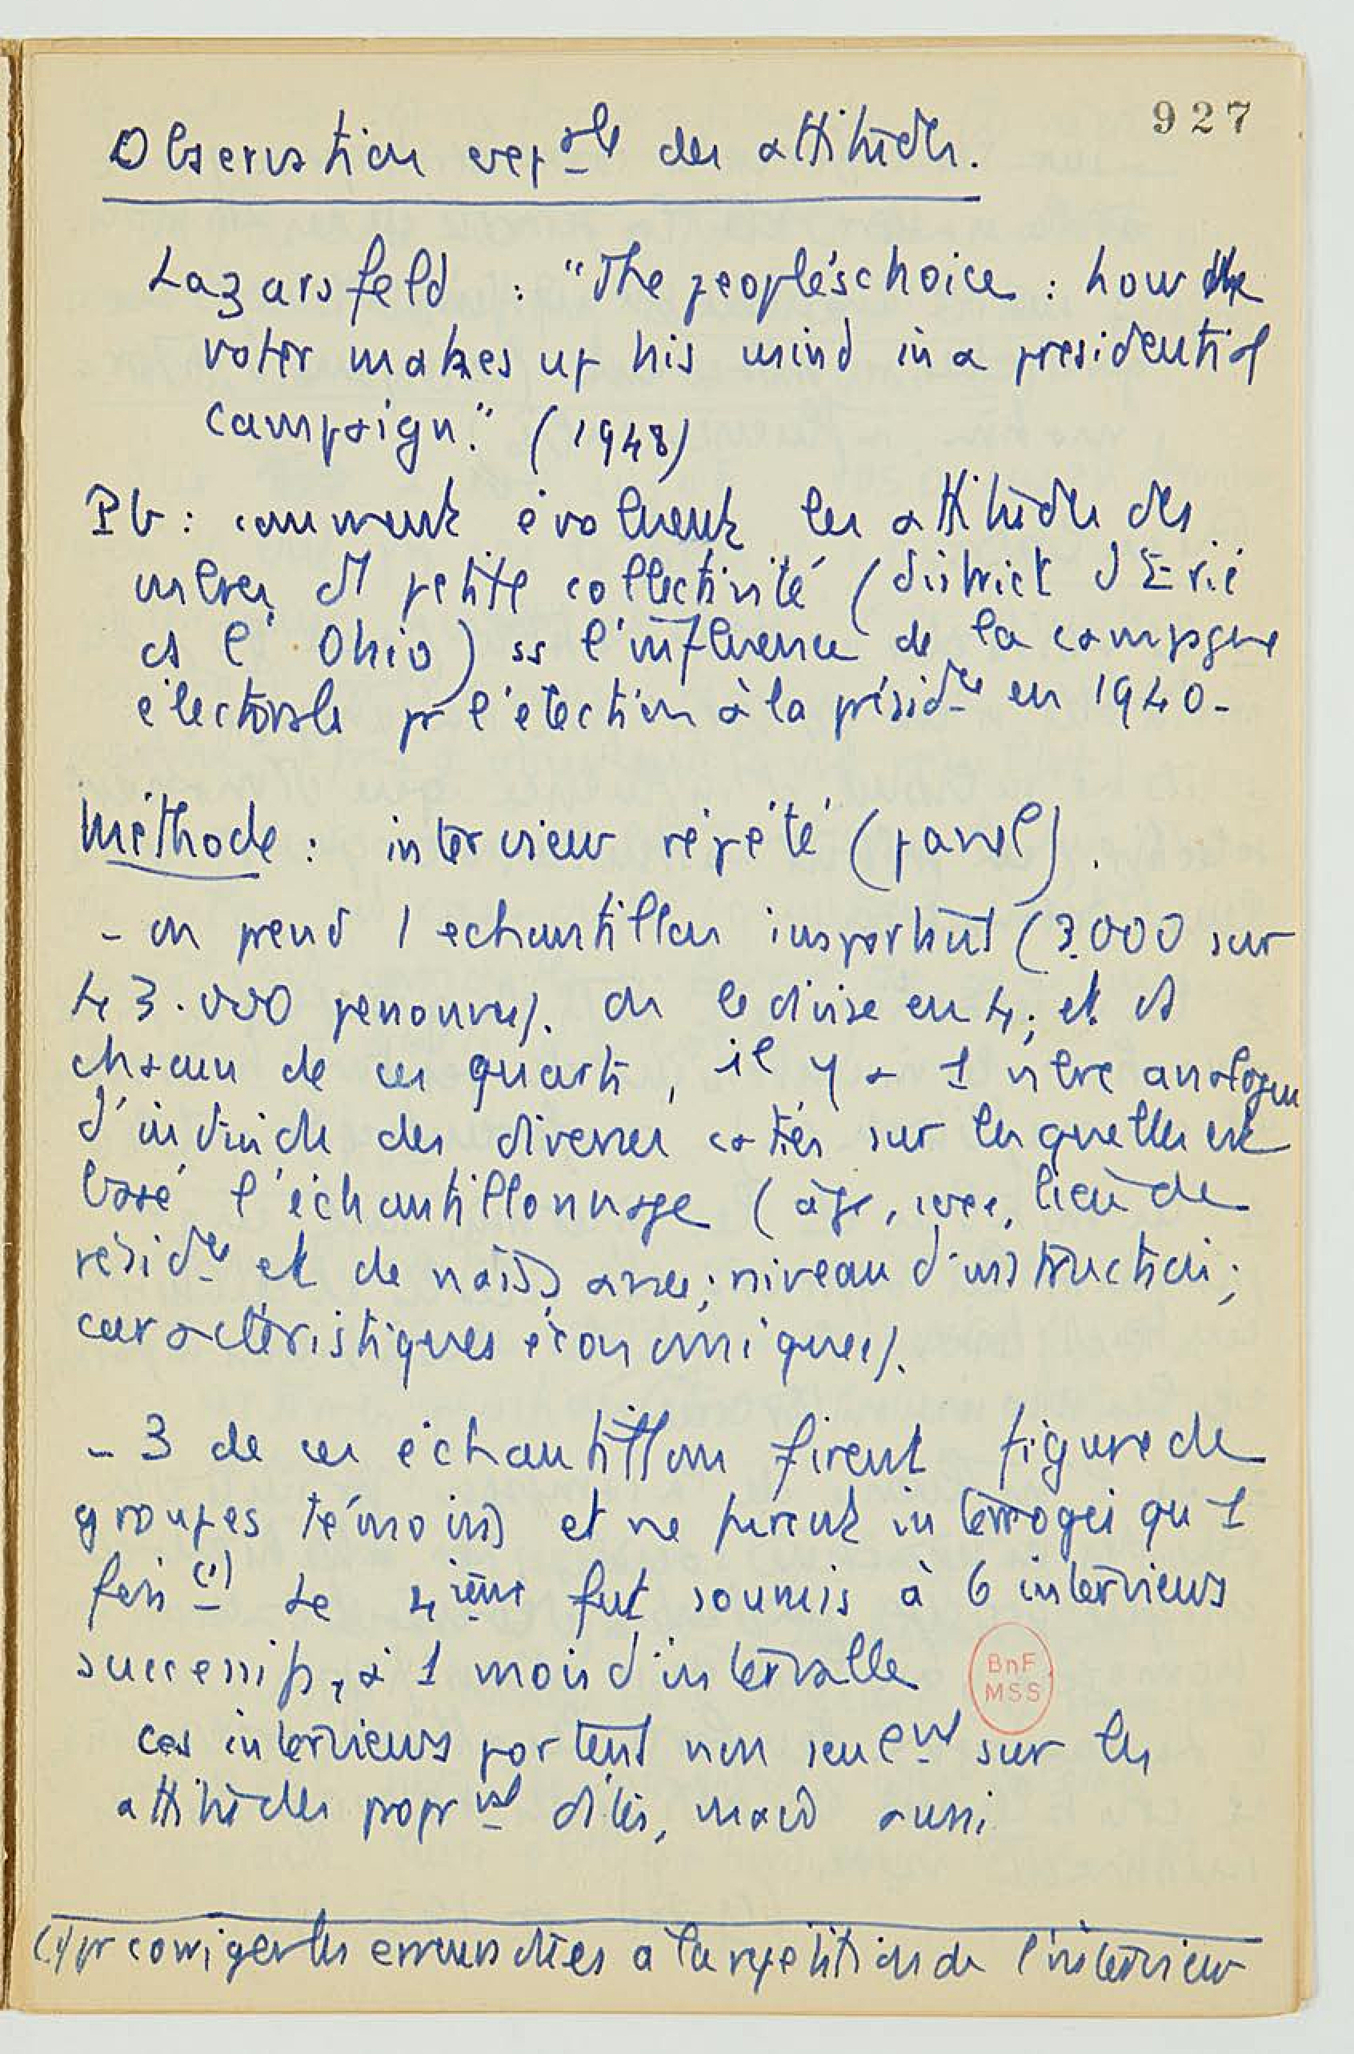 927
Observation expale des attitudes.
Lazarsfeld : "The people's choice : how the
voter makes up his mind in a presidential
campaign." (1948)
Pb : comment évoluent les attitudes des
mbres ds 1 petite collectivité (district d'Erié
ds l'Ohio) ss l'influence de la campagne
électorale pr l'élection à la présidce en 1940-
Méthode : interview répété (panel).
- on prend 1 échantillon important (3.000 sur
43.000 personnes). On le divise en 4 ; et ds
chacun de ces quarts, il y a 1 nbre analogue
d'individus des diverses caties sur lesquelles est
basé l'échantillonnage (âge, sexe, lieu de
résidce et de naissance ; niveau d'instruction ;
caractéristiques économiques).
- 3 de ces échantillons firent figure de
groupes témoins et ne furent interrogés qu'1
fois (1) Le 4ième fut soumis à 6 interviews
successifs, à 1 mois d'intervalle
BnF
MSS
ces interviews portent non seulent sur les
attitudes proprnt dites, mais aussi
(1) pr corriger les erreurs dues à la répétition de l'interview